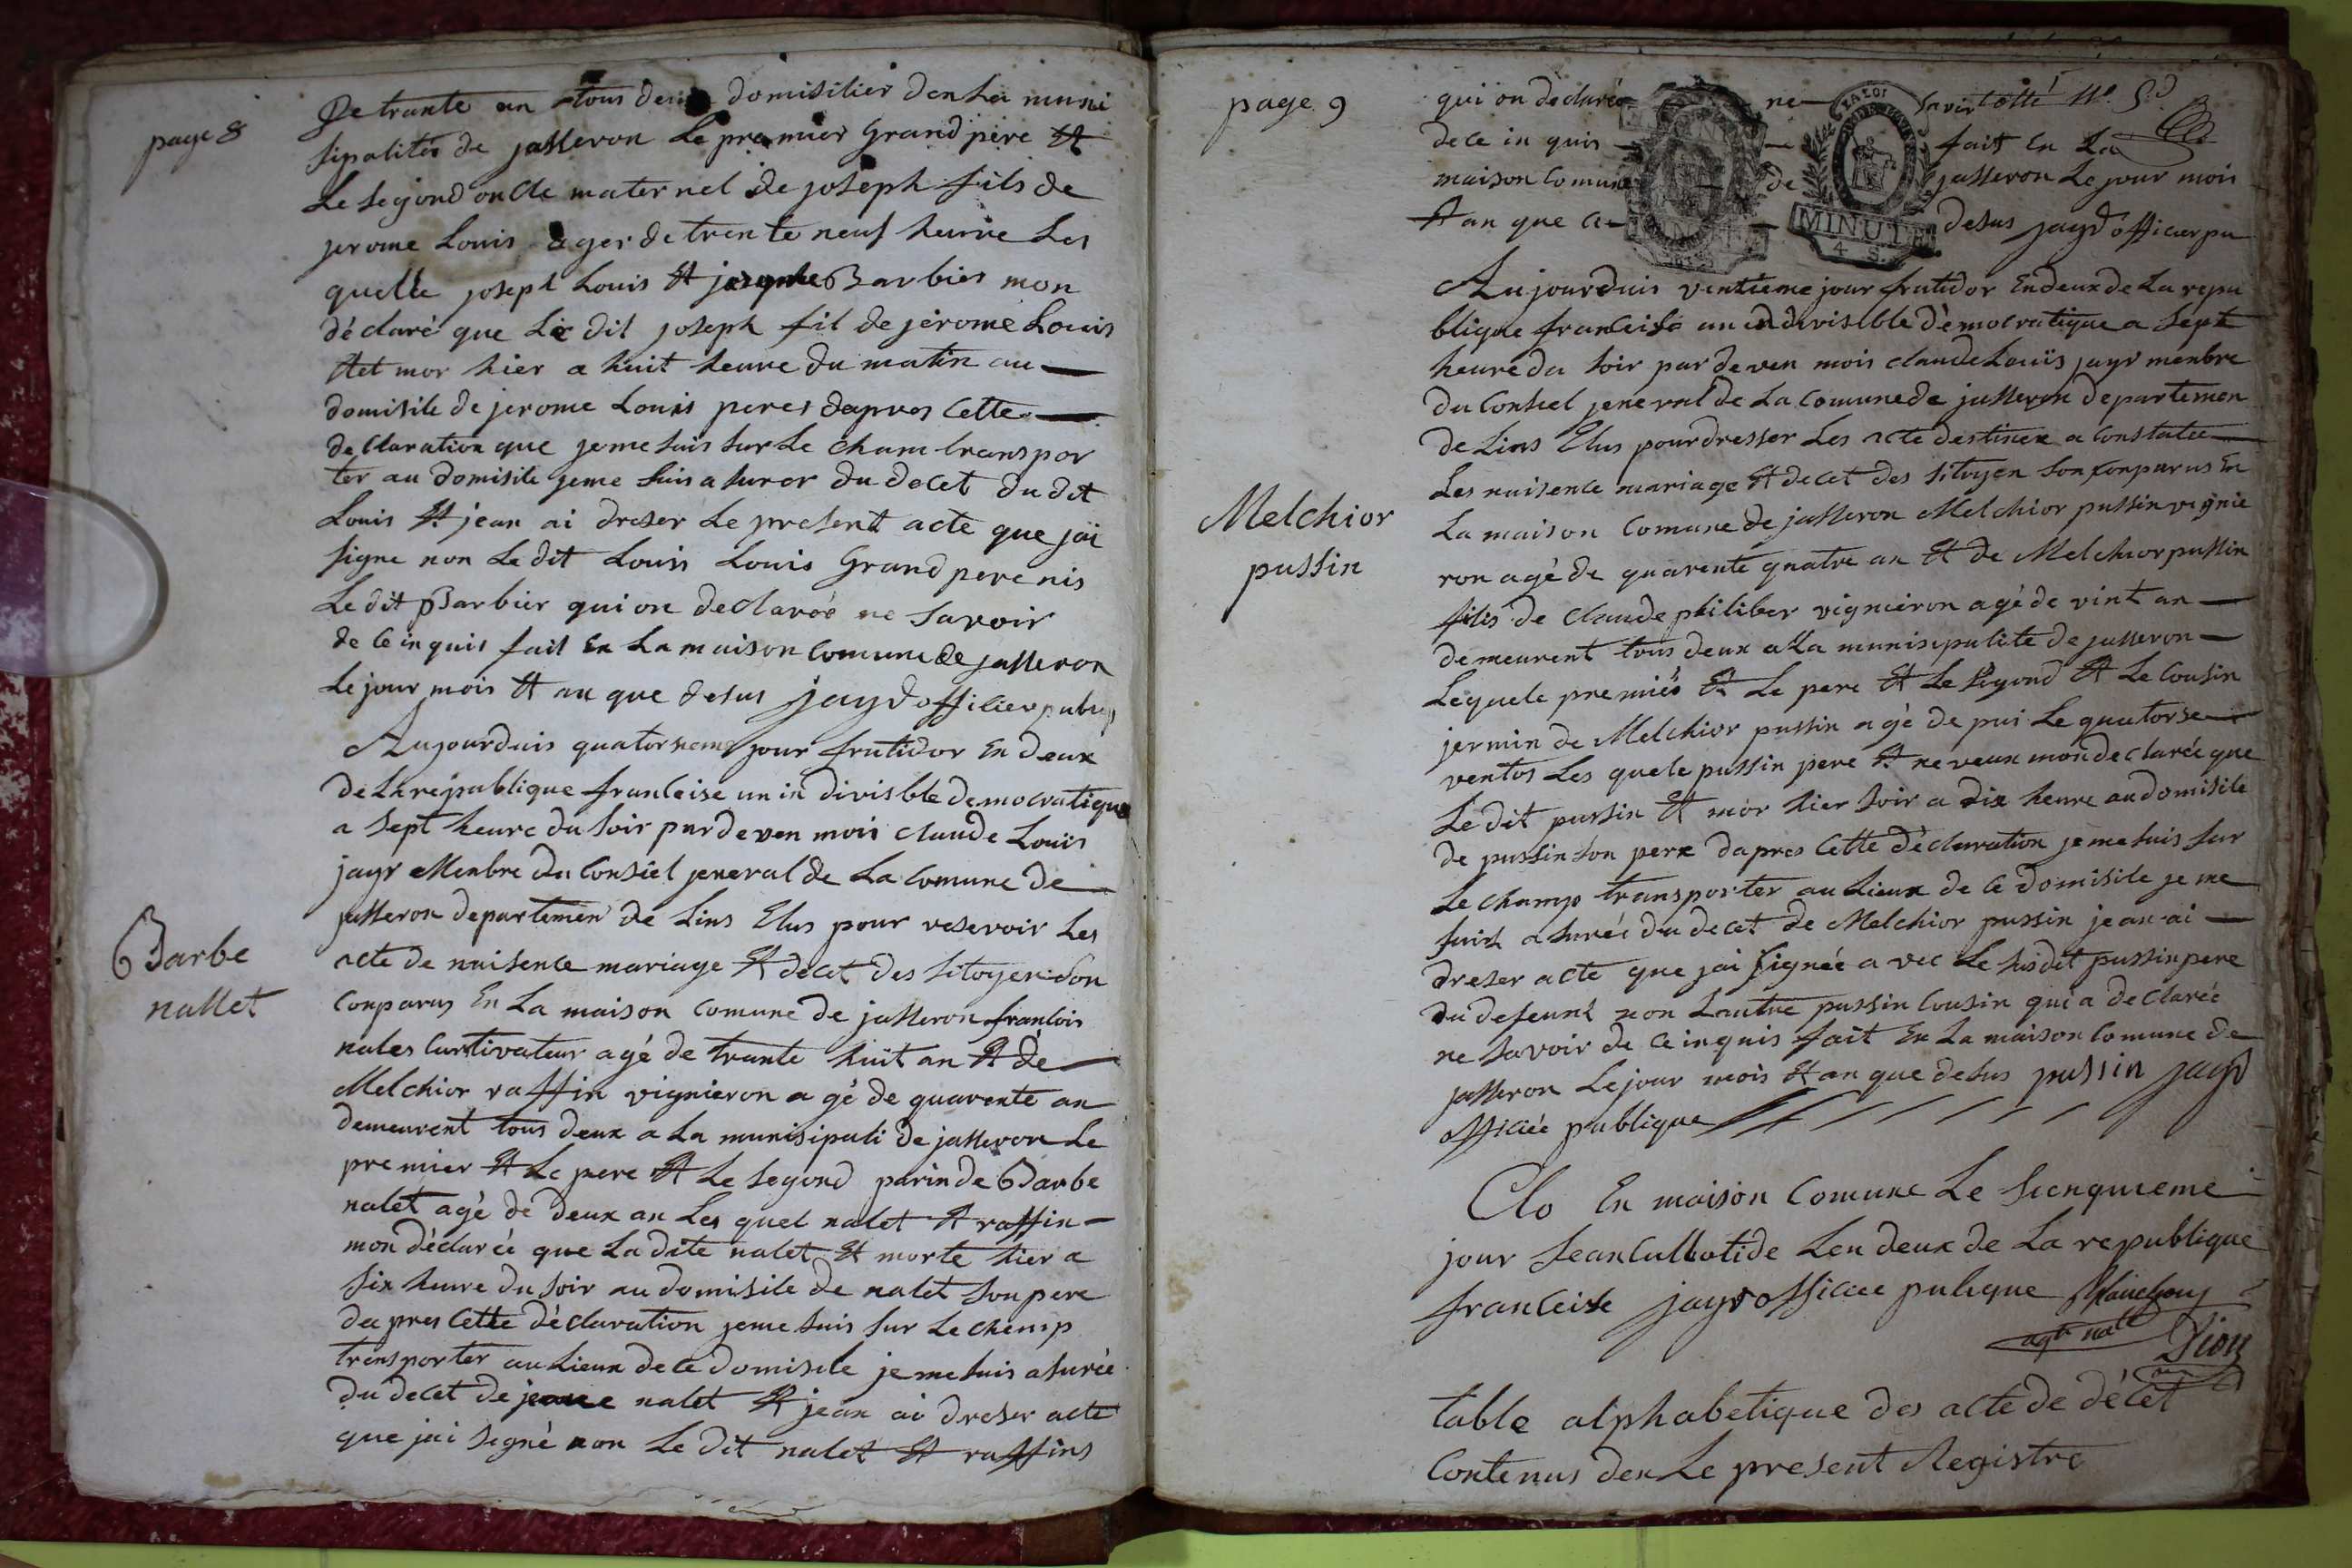 page 8
De trante an tous deux domisilier den La muni
sipalités de jasseron Le premier Grand pere Et
Le segond oncle maternel de joseph fils de
jerome Louis ager de trente neuf heure Les
quelle joseph Louis Et joseph Barbier mon
déclaré que Le dit joseph fil de jérome Louis
Etet mor hier a huit heure du matin au
domisile de jerome Louis peres dapres Cette
declaration que jeme suis sur Le cham transpor
ter au domisile jeme suis asurer du decet du dit
Louis Et jean ai dreser Le present acte que jai
signe non Le dit Louis Louis Grand pere nis
Le dit Barbier qui on declarée ne savoir
de ce inquis fait En La maison Comune de jasseron
Le jour mois Et an que desus jayr officier publiq
Barbe
nallet
Aujourduis quatorsieme jour frutidor En deux
de La republique franceise un in divisble democratique
a sept heure du soir pardeven mois claude Louis
jayr Menbre du Consiel jeneral de La Comune de
jasseron departemen de Lins Elus pour reservoir Les
acte de naisence mariage Et décet des sitoyen son
Conparus En La maison Comune de jasseron francois
nales Curtivateur agé de trante huit an Et de
Melchior raffin vignieron agé de quarente an
demeurent tous deux a La munisipali de jasseron Le
premier Et Le pere Et Le segond parin de Barbe
nalet agé de deux an Les quel nalet Et raffin
mon déclarée que La dite nalet Et morte hier a
six heure du soir au domisile de nalet son pere
dapres Cette déclaration jeme suis sur Le chemp
transporter au Lieux de ce domisile je me suis asurée
du decet de nalet Et jean ai dreser acte
que jai segné non Le dit nalet Et raffins
page 9
qui on declarée ne savir Cotté No. 5.d
de ce in quis fait En La
maison Comune de jasseron Le jour mois
Et an que ci desus jayr officier pu
LA LOI
MINUTE
4 S.
Melchior
pussin
Aujourduis ventieme jour frutidor En deux de La repu
blique franceise un indivisible démocratique a sept
heure du soir par deven mois claude Louis jayr menbre
du Consiel jeneral de La Comune de jasseron departemen
de Lins Elus pour dresser Les acte destinex a Constatee
Les naisence mariage Et decet des sitoyen son Conparus En
La maison Comune de jasseron Melchior pussin vignie
ron agé de quarente quatre an Et de Melchior pussin
filis de Claude philiber vignieron agé de vint an
demeurent tous deux a La munisipalite de jasseron
Lequele premiés Et Le pere Et Le segond Et Le Cousin
jermin de Melchior pussin agé de pui Le quatorse
ventos Les quele pussin pere Et neveux mon declarée que
Le dit pussin Et mor hier soir a dix heure au domisile
de pussin son pere dapres Cette déclaration jeme suis sur
Le champ transporter au Lieux de ce domisile je me
suis asurée du decet de Melchior pussin jean ai
dreser acte que jai signée avec Le susdit pussin pere
du defeunt non Lautre pussin Cousin qui a declarée
ne savoir de ce inquis fait En La maison Comune de
jasseron Le jour mois Et an que desus pussin jayr
officiée publique
Clo En maison Comune Le sienquieme
jour seanCullotide Len deux de La republique
franceise jayr officiee pulique
agt natl
table alphabetique des acte de décet
Contenus den Le present Registre